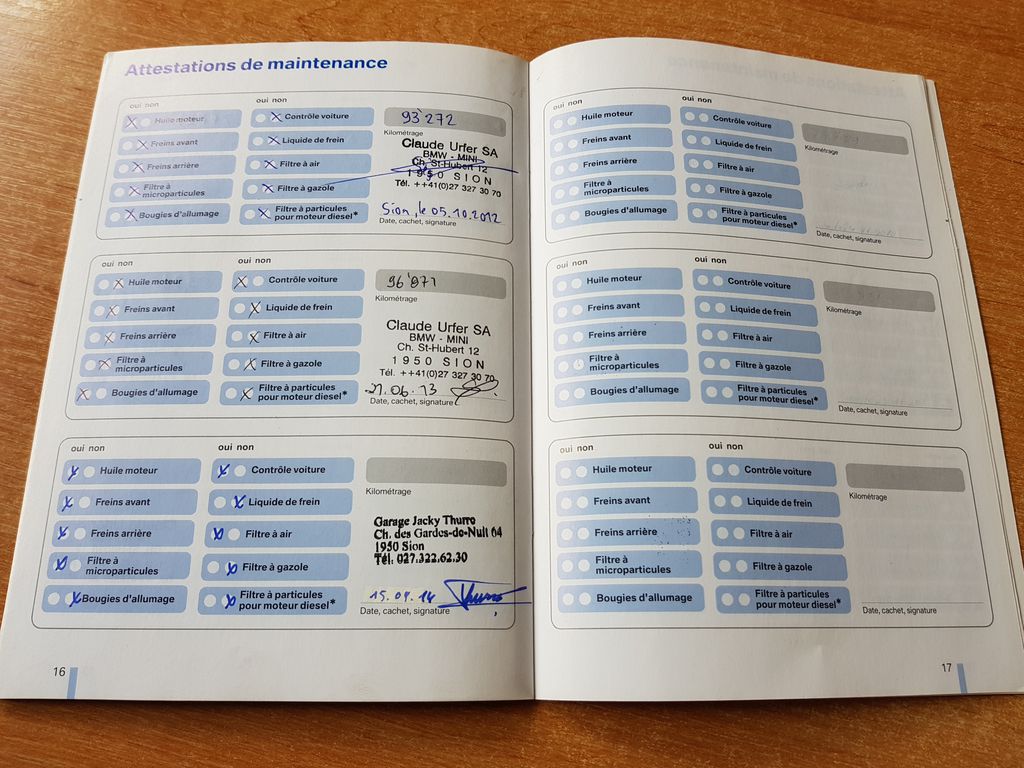 Attestations de maintenance
oui non
oui non
Huile moteur
Contrôle voiture
93'272
Kilométrage
Freins avant
Liquide de frein
Claude Urfer SA
BMW - MINI
Ch. St-Hubert 12
1950 SION
Tél. ++41(0)27 327 30 70
Freins arrière
Filtre à air
Filtre à
microparticules
Filtre à gazole
Bougies d'allumage
Filtre à particules
pour moteur diesel*
Sion, le 05.10.2012
Date, cachet, signature
oui non
oui non
Huile moteur
Contrôle voiture
96'971
Kilométrage
Freins avant
Liquide de frein
Claude Urfer SA
BMW - MINI
Ch. St-Hubert 12
1950 SION
Tél. ++41(0)27 327 30 70
Freins arrière
Filtre à air
Filtre à
microparticules
Filtre à gazole
Bougies d'allumage
Filtre à particules
pour moteur diesel*
27.06.13
Date, cachet, signature
oui non
oui non
Huile moteur
Contrôle voiture
Kilométrage
Freins avant
Liquide de frein
Garage Jacky Thurre
Ch. des Gardes-de-Nuit 64
1950 Sion
Tél. 027.322.62.30
Freins arrière
Filtre à air
Filtre à
microparticules
Filtre à gazole
Bougies d'allumage
Filtre à particules
pour moteur diesel*
15.09.14
Date, cachet, signature
16
oui non
oui non
Huile moteur
Contrôle voiture
Kilométrage
Freins avant
Liquide de frein
Freins arrière
Filtre à air
Filtre à
microparticules
Filtre à gazole
Bougies d'allumage
Filtre à particules
pour moteur diesel*
Date, cachet, signature
oui non
oui non
Huile moteur
Contrôle voiture
Kilométrage
Freins avant
Liquide de frein
Freins arrière
Filtre à air
Filtre à
microparticules
Filtre à gazole
Bougies d'allumage
Filtre à particules
pour moteur diesel*
Date, cachet, signature
oui non
oui non
Huile moteur
Contrôle voiture
Kilométrage
Freins avant
Liquide de frein
Freins arrière
Filtre à air
Filtre à
microparticules
Filtre à gazole
Bougies d'allumage
Filtre à particules
pour moteur diesel*
Date, cachet, signature
17